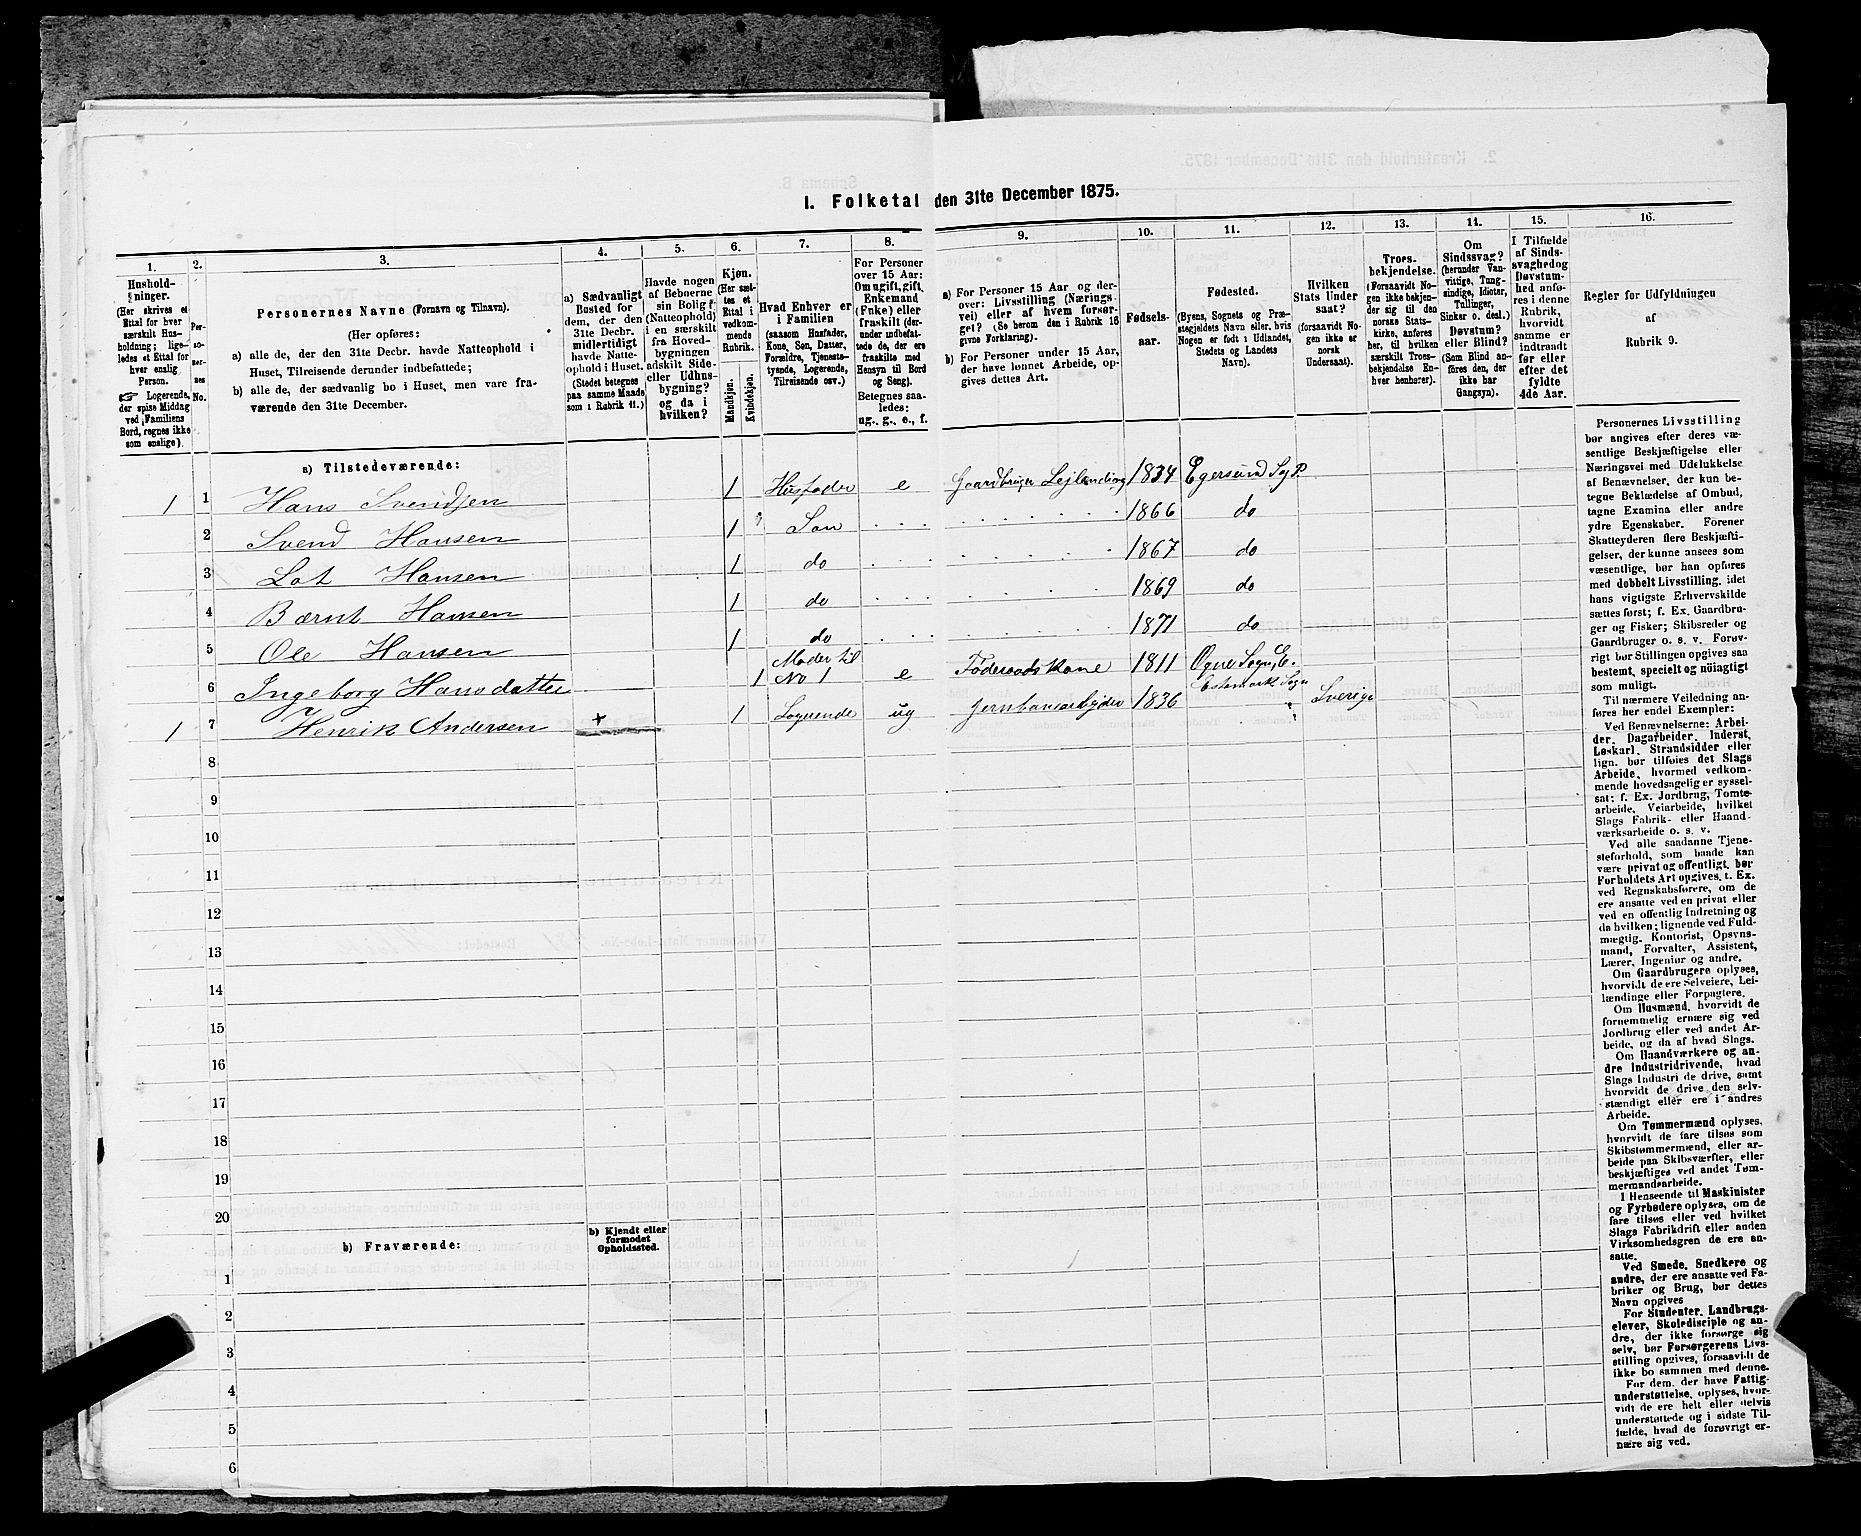 I. Folketal den 31te December 1875.
1. 2. 3. 4. 5. 6. 7. 8. 9. 10. 11. 12. 13. 14. 15. 16.
Hushold-
ninger.
(Her skrives et
Ettal for hver
særskilt Hus-
holdning; lige-
ledes et Ettal for
hver enslig
Person.
☞ Logerende,
der spise Middag
ved Familiens
Bord, regnes ikke
som enslige).
Per-
so-
ner-
nes
No.
Personernes Navne (Fornavn og Tilnavn).
(Her opføres:
a) alle de, der den 31te Decbr. havde Natteophold i
Huset, Tilreisende derunder indbefattede;
b) alle de, der sædvanlig bo i Huset, men vare fra-
værende den 31te December.
a) Sædvanligt
Bosted for
dem, der den
31te Decbr.
midlertidigt
havde Natte-
ophold i Huset.
(Stedet betegnes
paa samme Maade
som i Rubrik 11.)
Havde nogen
af Beboerne
sin Bolig
(Natteophold)
i en særskilt
fra Hoved-
bygningen
adskilt Side-
eller Udhus-
bygning?
og da i
hvilken?
Kjøn.
(Her sæt-
tes et
Ettal i
vedkom-
mende
Rubrik.
Mandkjøn.
Kvindekjøn.
Hvad Enhver er
i Familien
(saasom Husfader,
Kone, Søn, Datter,
Forældre, Tjeneste-
tyende, Logerende,
Tilreisende osv.)
For Personer
over 15 Aar:
Om ugift, gift,
Enkemand
(Enke) eller
fraskilt (der-
under indbefat-
tede de, der ere
fraskilte med
Hensyn til Bord
og Seng).
Betegnes saa-
ledes:
ug., g., e., f.
a) For Personer 15 Aar og der-
over: Livsstilling (Nærings-
vei) eller af hvem forsør-
get? (Se herom den i Rubrik 16
givne Forklaring).
b) For Personer under 15 Aar,
der have lønnet Arbeide, op-
gives dettes Art.
Fødsels-
aar.
Fødested.
(Byens, Sognets og Præ-
stegjeldets Navn eller, hvis
Nogen er født i Udlandet,
Stedets og Landets
Navn).
Hvilken
Stats Under-
saat?
(forsaavidt No-
gen ikke er
norsk
Undersaat).
Troes-
bekjendelse.
(Forsaavidt No-
gen ikke bekjen-
der sig til den
norske Stats-
kirke, anføres
her, til hvilken
særskilt Troes-
bekjendelse En-
hver henhører).
Om
Sindssvag?
(herunder Van-
vittige, Tung-
sindige, Idioter,
Tullinger,
Sinker o. desl.)
Døvstum?
eller Blind?
(Som Blind an-
føres den, der
ikke har
Gangsyn).
I Tilfælde
af Sinds-
svaghed og
Døvstum-
hed anfø-
res i denne
Rubrik,
hvorvidt
samme er
indtraadt
før eller
efter det
fyldte
4de Aar.
Regler for Udfyldningen
af
Rubrik 9.
a) Tilstedeværende:
1 1 Hans Svendsen 1 Husfader e Gaardbruger Lejlending 1834 Egersund Sg P.
2 Svend Hansen 1 Søn 1866 do
3 Lot Hansen 1 do 1867 do
4 Bærnt Hansen 1 do 1869 do
5 Ole Hansen 1 do 1871 do
6 Ingeborg Hansdatter 1 Moder til No 1 e Föderaadskone 1811 Ogne Sogn, E.
1 7 Henrik Andersen + 1 Logerende ug Jernbanearbejder 1836 Sogn Sverige
8
9
10
11
12
13
14
15
16
17
18
19
20
b) Fraværende:
b) Kjendt eller
formodet
Opholdssted.
1
2
3
4
5
6
Personernes Livsstilling
bør angives efter deres væ-
sentlige Beskjæftigelse eller
Næringsvei med Udelukkelse
af Benævnelser, der kun be-
tegne Beklædelse af Ombud,
tagne Examina eller andre
ydre Egenskaber. Forener
Skatteyderen flere Beskjæfti-
gelser, der kunne ansees som
væsentlige, bør han opføres
med dobbelt Livsstilling, idet
hans vigtigste Erhvervskilde
sættes først; f. Ex. Gaardbru-
ger og Fisker; Skibsreder og
Gaardbruger o. s. v. Forøv-
rigt bør Stillingen opgives saa
bestemt, specielt og nøiagtigt
som muligt.
Til nærmere Veiledning an-
føres her endel Exempler:
Ved Benævnelserne: Arbei-
der, Dagarbeider, Inderst,
Løskarl, Strandsidder eller
lign. bør tilføies det Slags
Arbeide, hvormed vedkom-
mende hovedsagelig er syssel-
sat; f. Ex. Jordbrug, Tomte-
arbeide, Veiarbeide, hvilket
Slags Fabrik- eller Haand-
værksarbeide o. s. v.
Ved alle saadanne Tjene-
steforhold, som baade kan
være privat og offentligt, bør
Forholdets Art opgives, t. Ex.
ved Regnskabsførere, om de
ere ansatte ved en privat eller
ved en offentlig Indretning og
da hvilken; lignende ved Fuld-
mægtig, Kontorist, Opsyns-
mand, Forvalter, Assistent,
Lærer, Ingeniør og andre.
Om Gaardbrugere oplyses,
hvorvidt de ere Selveiere, Lei-
lændinge eller Forpagtere.
Om Husmænd, hvorvidt de
fornemmelig ernære sig ved
Jordbrug eller ved andet Ar-
beide, og da af hvad Slags.
Om Haandværkere og an-
dre Industridrivende, hvad
Slags Industri de drive, samt
hvorvidt de drive den selv-
stændigt eller ere i andres
Arbeide.
Om Tømmermænd oplyses,
hvorvidt de fare tilsøs som
Skibstømmermænd, eller ar-
beide paa Skibsværfter, eller
beskjæftiges ved andet Tøm-
mermandsarbeide.
I Henseende til Maskinister
og Fyrbødere oplyses, om de
fare tilsøs eller ved hvilket
Slags Fabrikdrift eller anden
Virksomhedsgren de ere an-
satte.
Ved Smede, Snedkere og
andre, der ere ansatte ved Fa-
briker og Brug, bør dettes
Navn opgives
For Studenter, Landbrugs-
elever, Skoledisciple og an-
dre, der ikke forsørge sig
selv, bør Forsørgerens Livs-
stilling opgives, forsaavidt de
ikke bo sammen med denne.
For dem, der have Fattig-
understøttelse, oplyses, hvor-
vidt de ere helt eller delvis
understøttede og i sidste Til-
fælde, hvad de forøvrigt er-
nære sig ved.